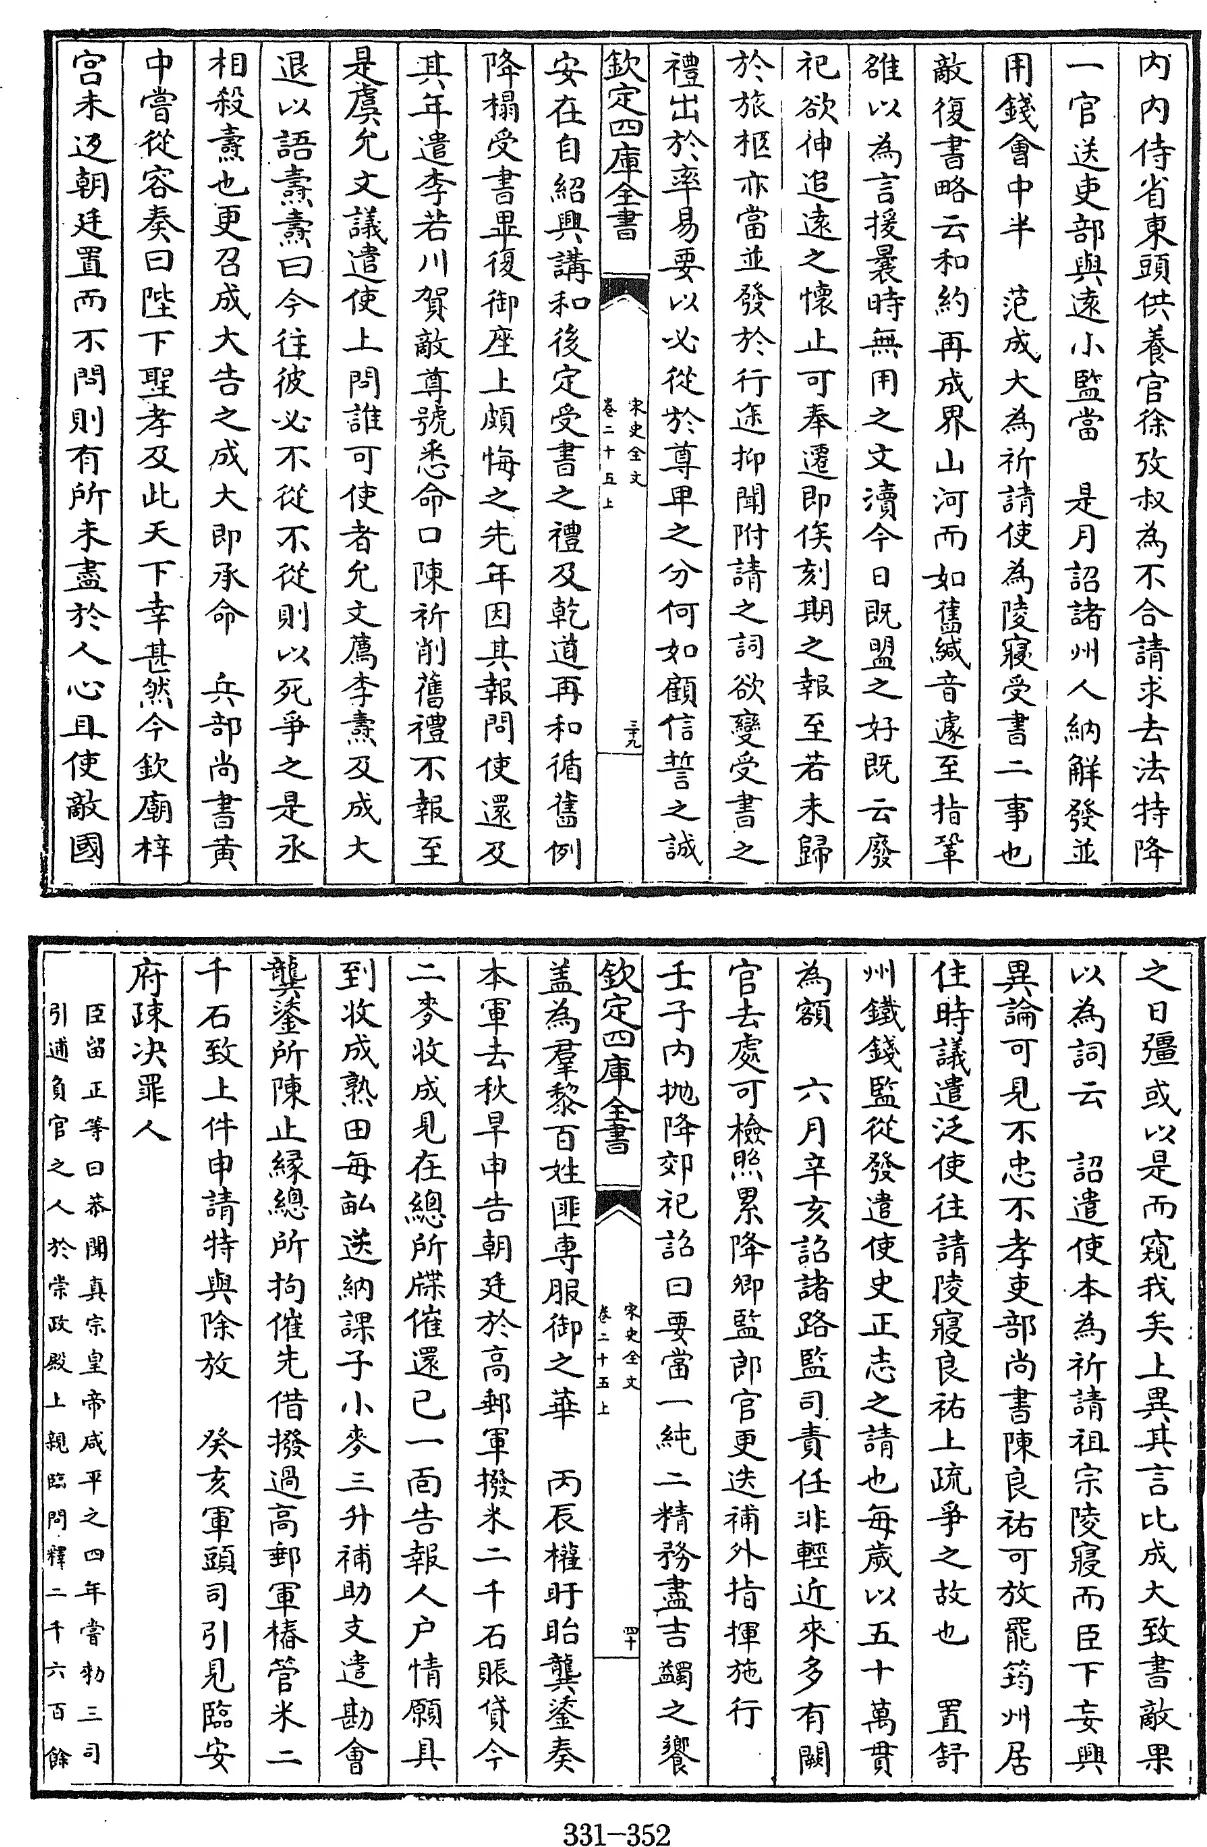 內內侍省東頭供養官徐攷叔為不合請求去法特降
一官送吏部與逺小監當　是月詔諸州人納解發並
用錢會中半　范成大為祈請使為陵寢受書二事也
敵復書略云和約再成界山河而如舊緘音遽至指鞏
雒以為言援曩時無用之文瀆今日既盟之好既云廢
祀欲伸追逺之懷止可奉遷即俟刻期之報至若未歸
於旅柩亦當並發於行途抑聞附請之詞欲變受書之
禮出於率易要以必從於尊卑之分何如顧信誓之誠
欽定四庫全書
宋史全文
卷二十五上
三十九
安在自紹興講和後定受書之禮及乾道再和循舊例
降榻受書畢復御座上頗悔之先年因其報問使還及
其年遣李若川賀敵尊號悉命口陳祈削舊禮不報至
是虞允文議遣使上問誰可使者允文薦李燾及成大
退以語燾燾曰今往彼必不從不從則以死爭之是丞
相殺燾也更召成大告之成大即承命　兵部尚書黃
中嘗從容奏曰陛下聖孝及此天下幸甚然今欽廟梓
宮未返朝廷置而不問則有所未盡於人心且使敵國
之日彊或以是而窺我矣上異其言比成大致書敵果
以為詞云　詔遣使本為祈請祖宗陵寢而臣下妄興
異論可見不忠不孝吏部尚書陳良祐可放罷筠州居
住時議遣泛使往請陵寢良祐上疏爭之故也　置舒
州鐵錢監從發遣使史正志之請也每歲以五十萬貫
為額　六月辛亥詔諸路監司責任非輕近來多有闕
官去處可檢照累降卿監郎官更迭補外指揮施行
壬子內抛降郊祀詔曰要當一純二精務盡吉蠲之饗
欽定四庫全書
宋史全文
卷二十五上
四十
盖為羣黎百姓匪専服御之華　丙辰權盱眙龔鋈奏
本軍去秋旱申告朝廷於高郵軍撥米二千石賑貸今
二麥收成見在總所牒催還已一面告報人户情願具
到收成熟田每畝送納課子小麥三升補助支遣勘會
龔鋈所陳止緣總所拘催先借撥過高郵軍樁管米二
千石致上件申請特與除放　癸亥軍頭司引見臨安
府疎决罪人
臣留正等曰恭聞真宗皇帝咸平之四年嘗勑三司
引逋負官之人於崇政殿上親臨問釋二千六百餘
331—352